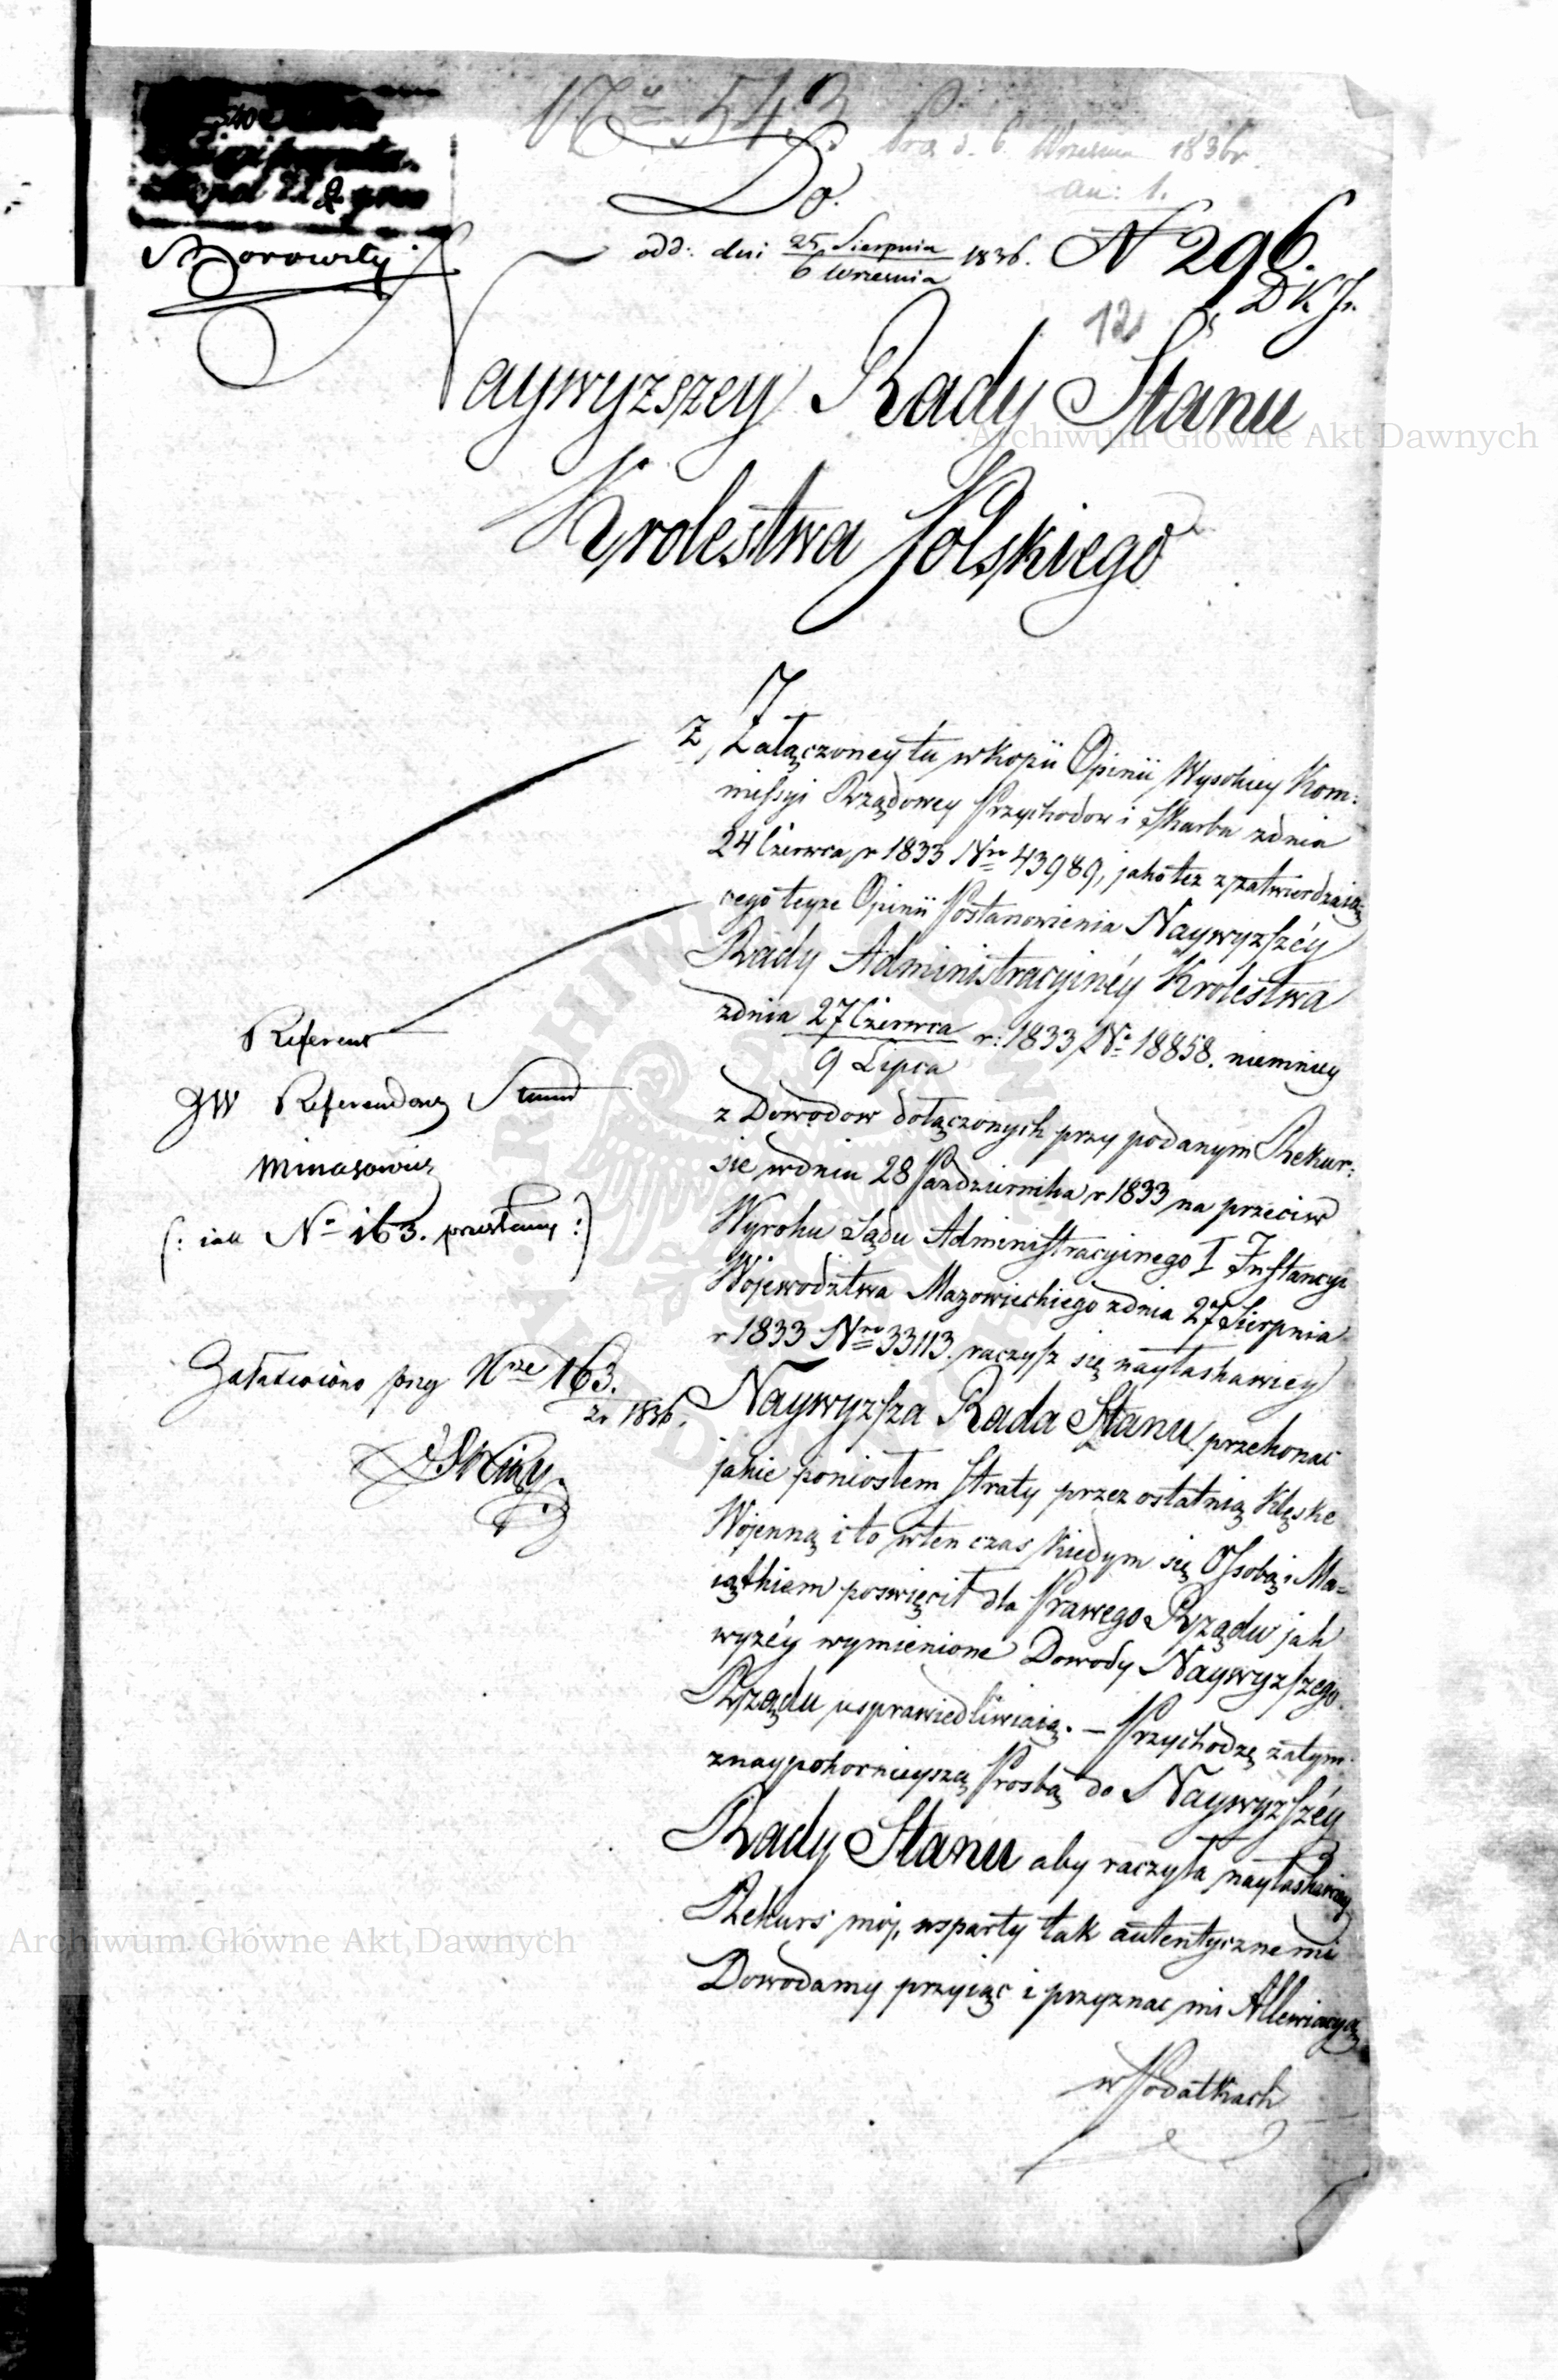 Nro 543
Do
d. 6. Września 1836 r.
an: 1.
Borowski
odd: dni 25 Sierpnia / 6 Września 1836. N 296.
D K Js.
12
Naywyzszey Rady Stanu
Krolestwa Polskiego
Z, Załączoney tu w kopii Opinii Wysokiey Kom:
missyi Rządowey Przychodow i Skarbu zdnia
24 Czerwca r 1833 Nro 43989, jako tez z zatwierdzaią
cego teyze Opinii Postanowienia Naywyzszéy
Rady Administracyinéy Krolestwa
zdnia 27 Czerwca / 9 Lipca r: 1833 No 18858. niemniey
z Dowodow dołączonych przy podanym Rekur:
sie wdniu 28 Pazdziernika r 1833 na przeciw
Wyroku Sądu Administracyinego I Instancyi
Wojewodztwa Mazowieckiego zdnia 27 Sierpnia
r 1833 Nro 33113. raczysz się nayłaskawiey
Naywyzsza Rada Stanu, przekonac
jakie poniosłem Straty przez ostatnią Klęske
Wojenną i to wten czas Kiedym się Osobą i Ma=
iątkiem poswięcił dla Prawego Rządu jak
wyzéy wymienione Dowody Naywyzszego
Rządu usprawiedliwiaią. – Przychodzę zatym
znaypokornieyszą Prosbą do Naywyzszéy
Rady Stanu aby raczyła nayłaskawiey
Rekurs mój, wsparty tak autentycznemi
Dowodamy przyiąc i przyznac mi Allewiacyą
w Podatkach
Referent
JW Referendarz Stanu
Minasowicz
(: iak No 163. przesłany :)
Załatwiono przy Nrze 163.
z r 1836.
Archiwum Główne Akt Dawnych
Archiwum Główne Akt Dawnych
ARCHIWUM GŁÓWNE AKT DAWNYCH